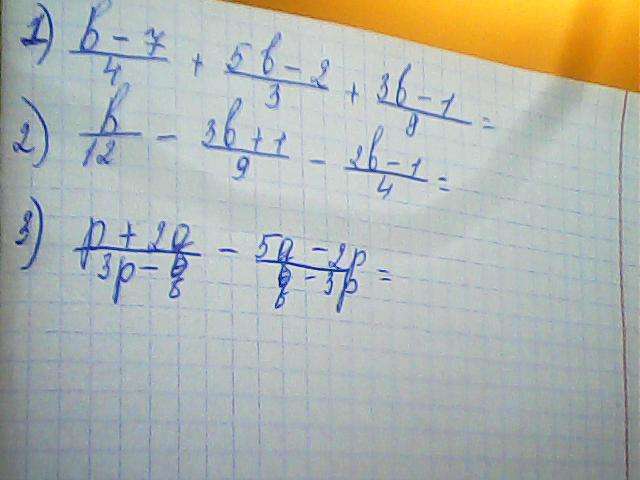 1) b-7/4 + 5b-2/3 + 3b-1/9 =
2) b/12 - 3b+1/9 - 2b-1/4 =
3) p+2q/3p- - 5q-2p/-3p =